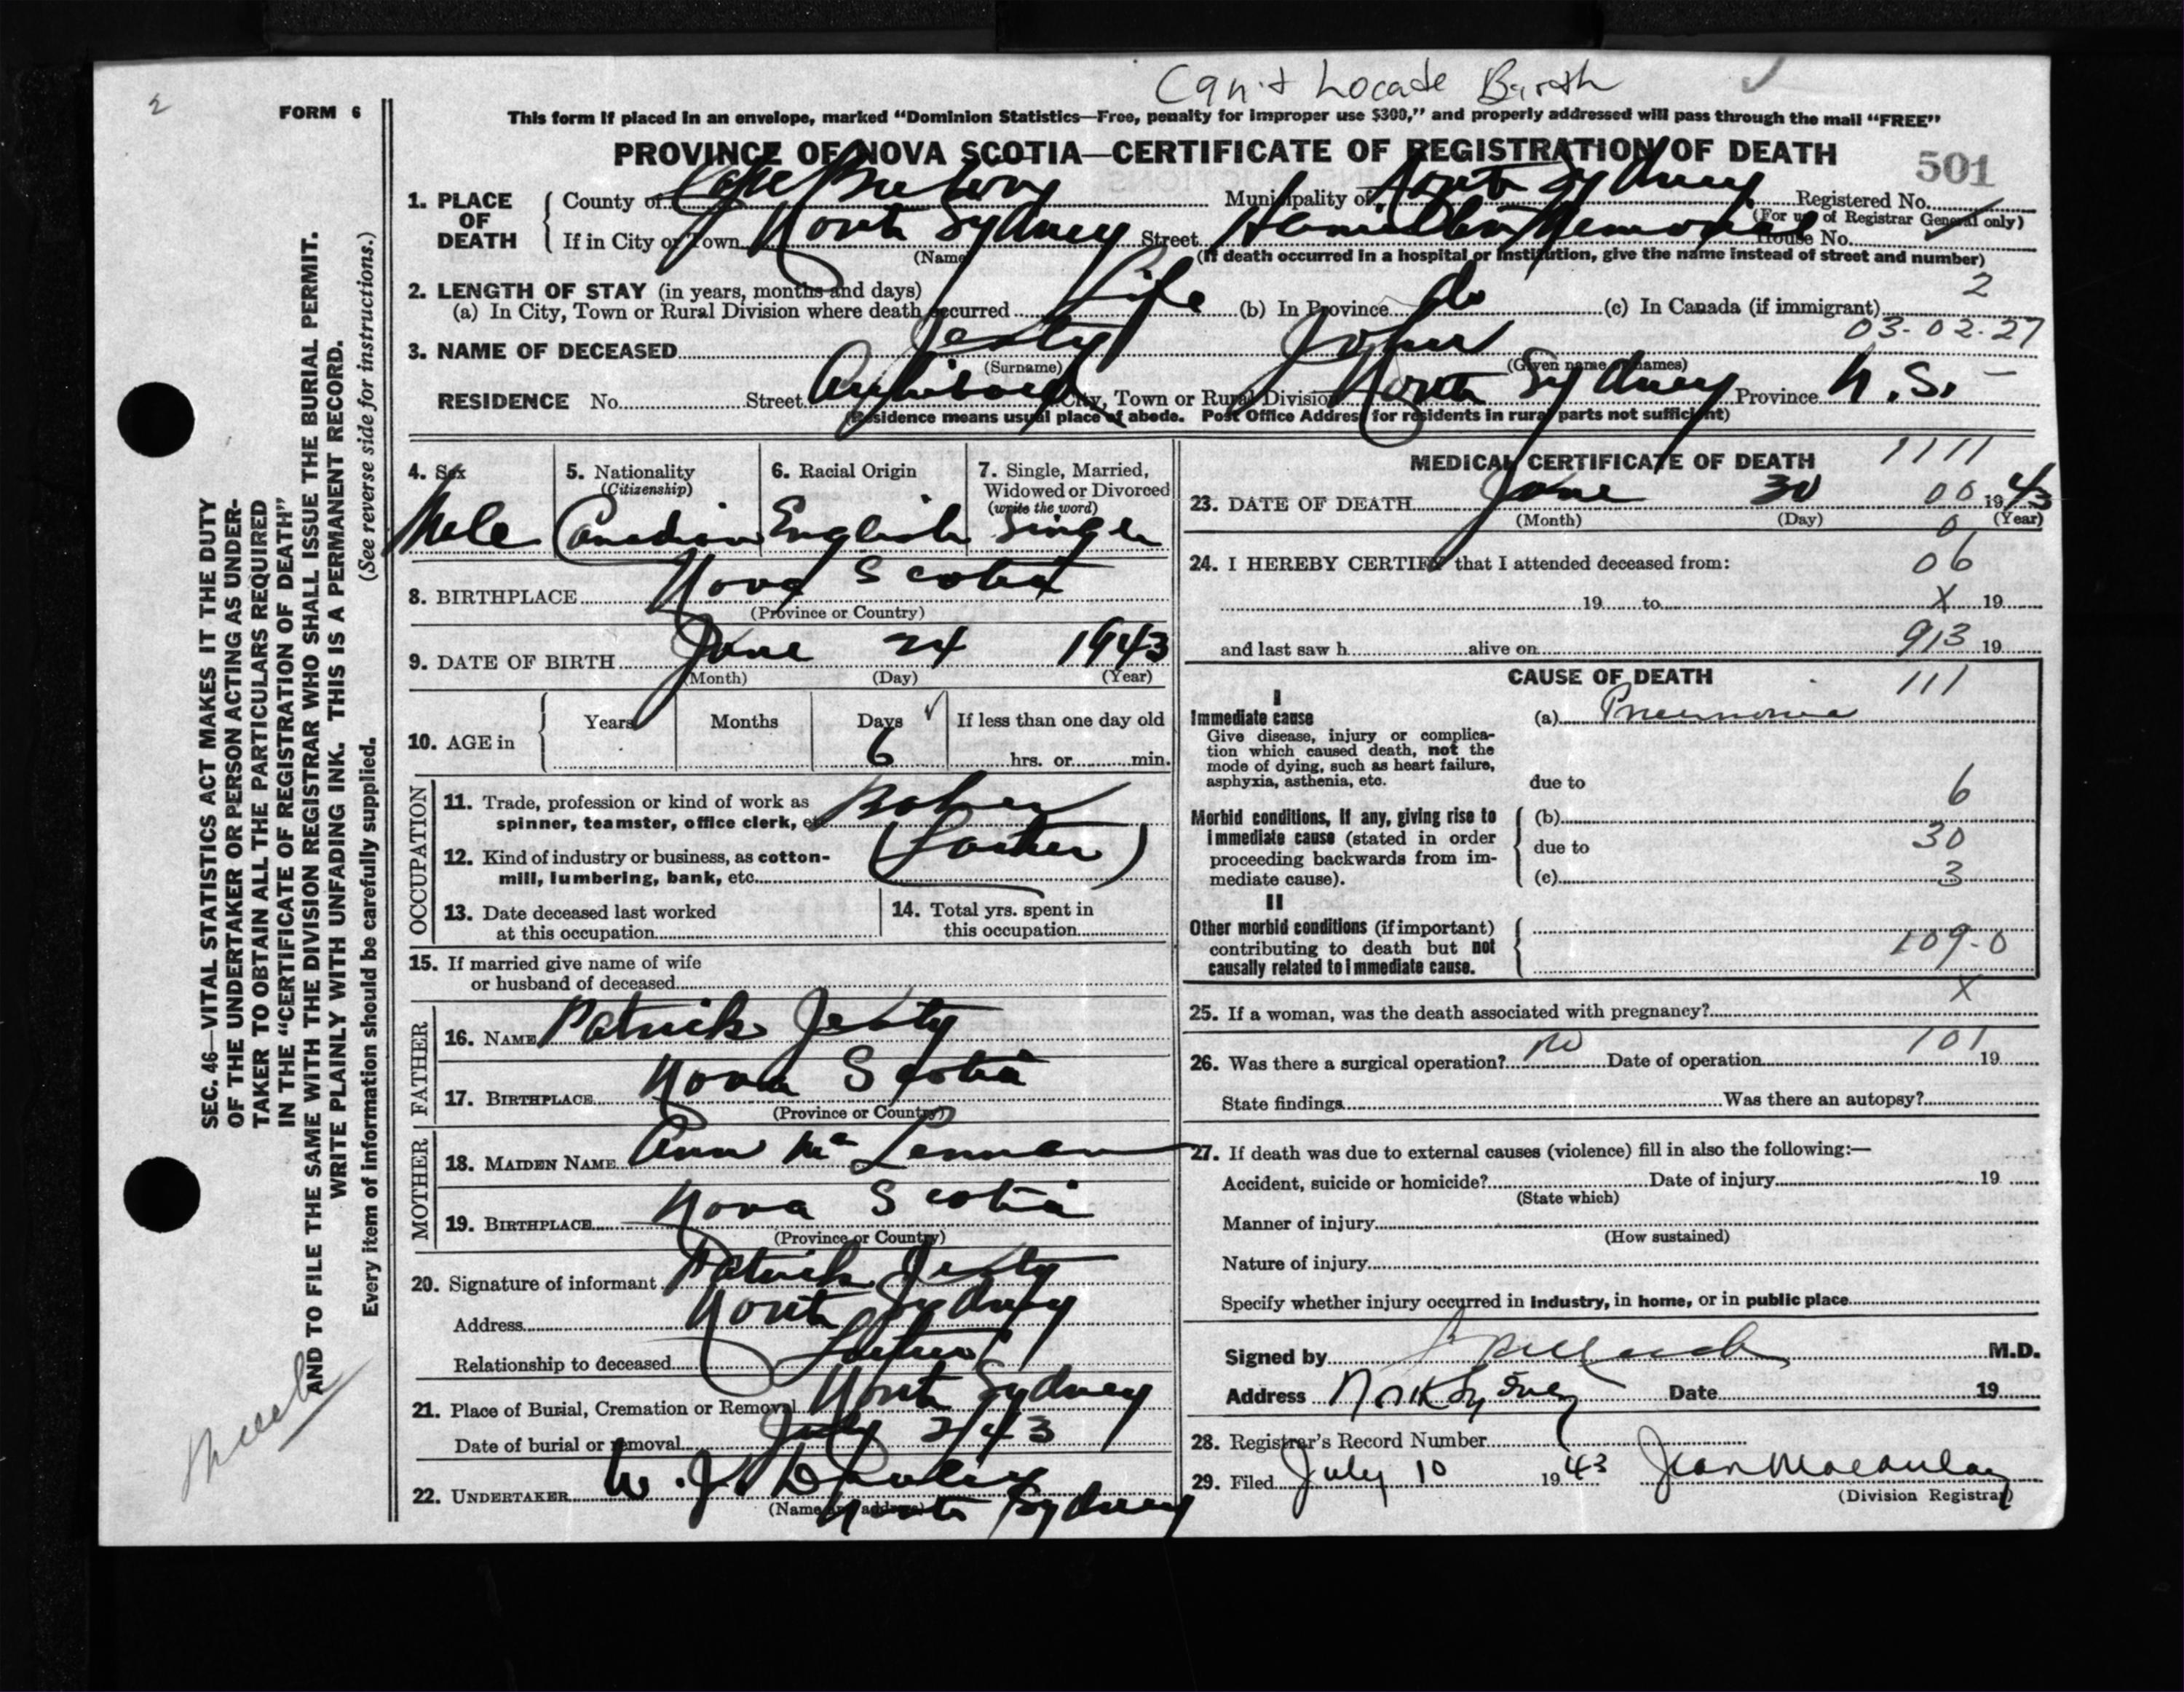 Can't Locate Birth
2
FORM 6
This form if placed in an envelope, marked "Dominion Statistics—Free, penalty for improper use $300," and properly addressed will pass through the mail "FREE"
PROVINCE OF NOVA SCOTIA—CERTIFICATE OF REGISTRATION OF DEATH
501
1. PLACE OF DEATH
County of Cape Breton Municipality of North Sydney Registered No.
(For use of Registrar General only)
If in City or Town North Sydney Street Hamilton Memorial House No.
(Name) (If death occurred in a hospital or institution, give the name instead of street and number)
2. LENGTH OF STAY (in years, months and days) 2
(a) In City, Town or Rural Division where death occurred Life (b) In Province do (c) In Canada (if immigrant)
03-02-27
3. NAME OF DECEASED Jesty John
(Surname) (Given name or names)
RESIDENCE No. Street Archibald City, Town or Rural Division North Sydney Province N.S.
(Residence means usual place of abode. Post Office Address for residents in rural parts not sufficient)
4. Sex Male
5. Nationality (Citizenship) Canadian
6. Racial Origin English
7. Single, Married, Widowed or Divorced (write the word) Single
8. BIRTHPLACE Nova Scotia
(Province or Country)
9. DATE OF BIRTH June 24 1943
(Month) (Day) (Year)
10. AGE in Years Months Days 6 If less than one day old
hrs. or min.
OCCUPATION
11. Trade, profession or kind of work as spinner, teamster, office clerk, etc.
12. Kind of industry or business, as cotton-mill, lumbering, bank, etc. (Father)
13. Date deceased last worked at this occupation
14. Total yrs. spent in this occupation
15. If married give name of wife or husband of deceased
FATHER
16. NAME Patrick Jesty
17. BIRTHPLACE Nova Scotia
(Province or Country)
MOTHER
18. MAIDEN NAME Ann McLennan
19. BIRTHPLACE Nova Scotia
(Province or Country)
20. Signature of informant Patrick Jesty
Address North Sydney
Relationship to deceased Father
21. Place of Burial, Cremation or Removal North Sydney
Date of burial or removal July 2/43
22. UNDERTAKER W. J.
(Name and address) North Sydney
MEDICAL CERTIFICATE OF DEATH 1111
23. DATE OF DEATH June 30 00 1943
(Month) (Day) (Year)
0
24. I HEREBY CERTIFY that I attended deceased from: 06
19 to X 19
and last saw h alive on 913 19
CAUSE OF DEATH
111
I
Immediate cause (a) Pneumonia
Give disease, injury or complication which caused death, not the mode of dying, such as heart failure, asphyxia, asthenia, etc.
due to
6
Morbid conditions, if any, giving rise to immediate cause (stated in order proceeding backwards from immediate cause).
(b)
due to 30
(c) 3
II
Other morbid conditions (if important) contributing to death but not causally related to immediate cause.
109-0
X
25. If a woman, was the death associated with pregnancy?
26. Was there a surgical operation? No Date of operation 101 19
State findings Was there an autopsy?
27. If death was due to external causes (violence) fill in also the following:—
Accident, suicide or homicide? Date of injury 19
(State which)
Manner of injury
(How sustained)
Nature of injury
Specify whether injury occurred in industry, in home, or in public place
Signed by M.D.
Address North Sydney Date 19
28. Registrar's Record Number
29. Filed July 10 1943 Jean Macaulay
(Division Registrar)
SEC. 46—VITAL STATISTICS ACT MAKES IT THE DUTY
OF THE UNDERTAKER OR PERSON ACTING AS UNDER-
TAKER TO OBTAIN ALL THE PARTICULARS REQUIRED
IN THE "CERTIFICATE OF REGISTRATION OF DEATH"
AND TO FILE THE SAME WITH THE DIVISION REGISTRAR WHO SHALL ISSUE THE BURIAL PERMIT.
WRITE PLAINLY WITH UNFADING INK. THIS IS A PERMANENT RECORD.
Every item of information should be carefully supplied. (See reverse side for instructions.)